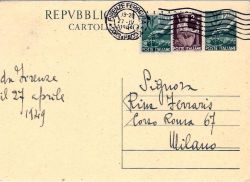 REPVBBLIC
CARTOL
POSTE ITALIANE
POSTE ITALIANE
da Firenze
il 27 aprile
1949
Signora
Rina Ferraris
Corso Roma 67
Milano